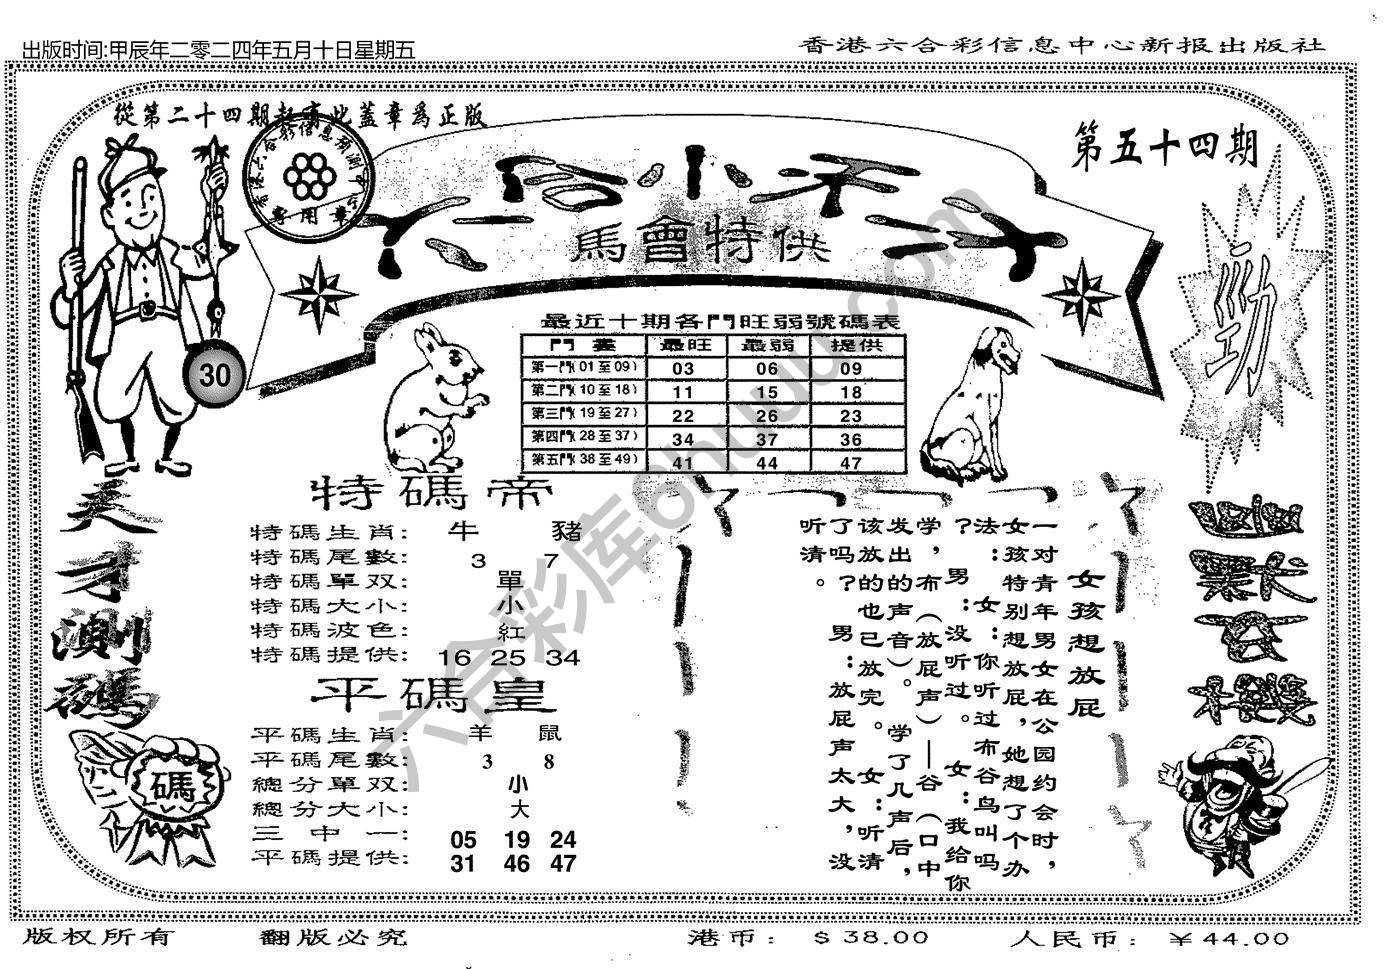 出版时间:甲辰年二零二四年五月十日星期五
香港六合彩信息中心新报出版社
從第二十四期起蓋此蓋章爲正版
香港六合彩信息預測中心
專用章
第五十四期
六合小子
馬會特供
勁
30
最近十期各門旺弱號碼表
門數 最旺 最弱 提供
第一門(01至09) 03 06 09
第二門(10至18) 11 15 18
第三門(19至27) 22 26 23
第四門(28至37) 34 37 36
第五門(38至49) 41 44 47
天才測碼
碼
特碼帝
特碼生肖: 牛 豬
特碼尾數: 3 7
特碼單双: 單
特碼大小: 小
特碼波色: 紅
特碼提供: 16 25 34
平碼皇
平碼生肖: 羊 鼠
平碼尾數: 3 8
總分單双: 小
總分大小: 大
三中一: 05 19 24
平碼提供: 31 46 47
女孩想放屁
一对青年男女在公园约会时，
女孩特别想放屁，她想了个办
法：女：你听过布谷鸟叫吗
？男：没听过。女：我给你
学，布（放屁声）—谷（口中
发出的声音）。学了几声后，
该放的也已放完。女：听清
了吗？男：放屁声太大，没
听清。
六合彩库6huu.com
版权所有
翻版必究
港币：$38.00
人民币：￥44.00